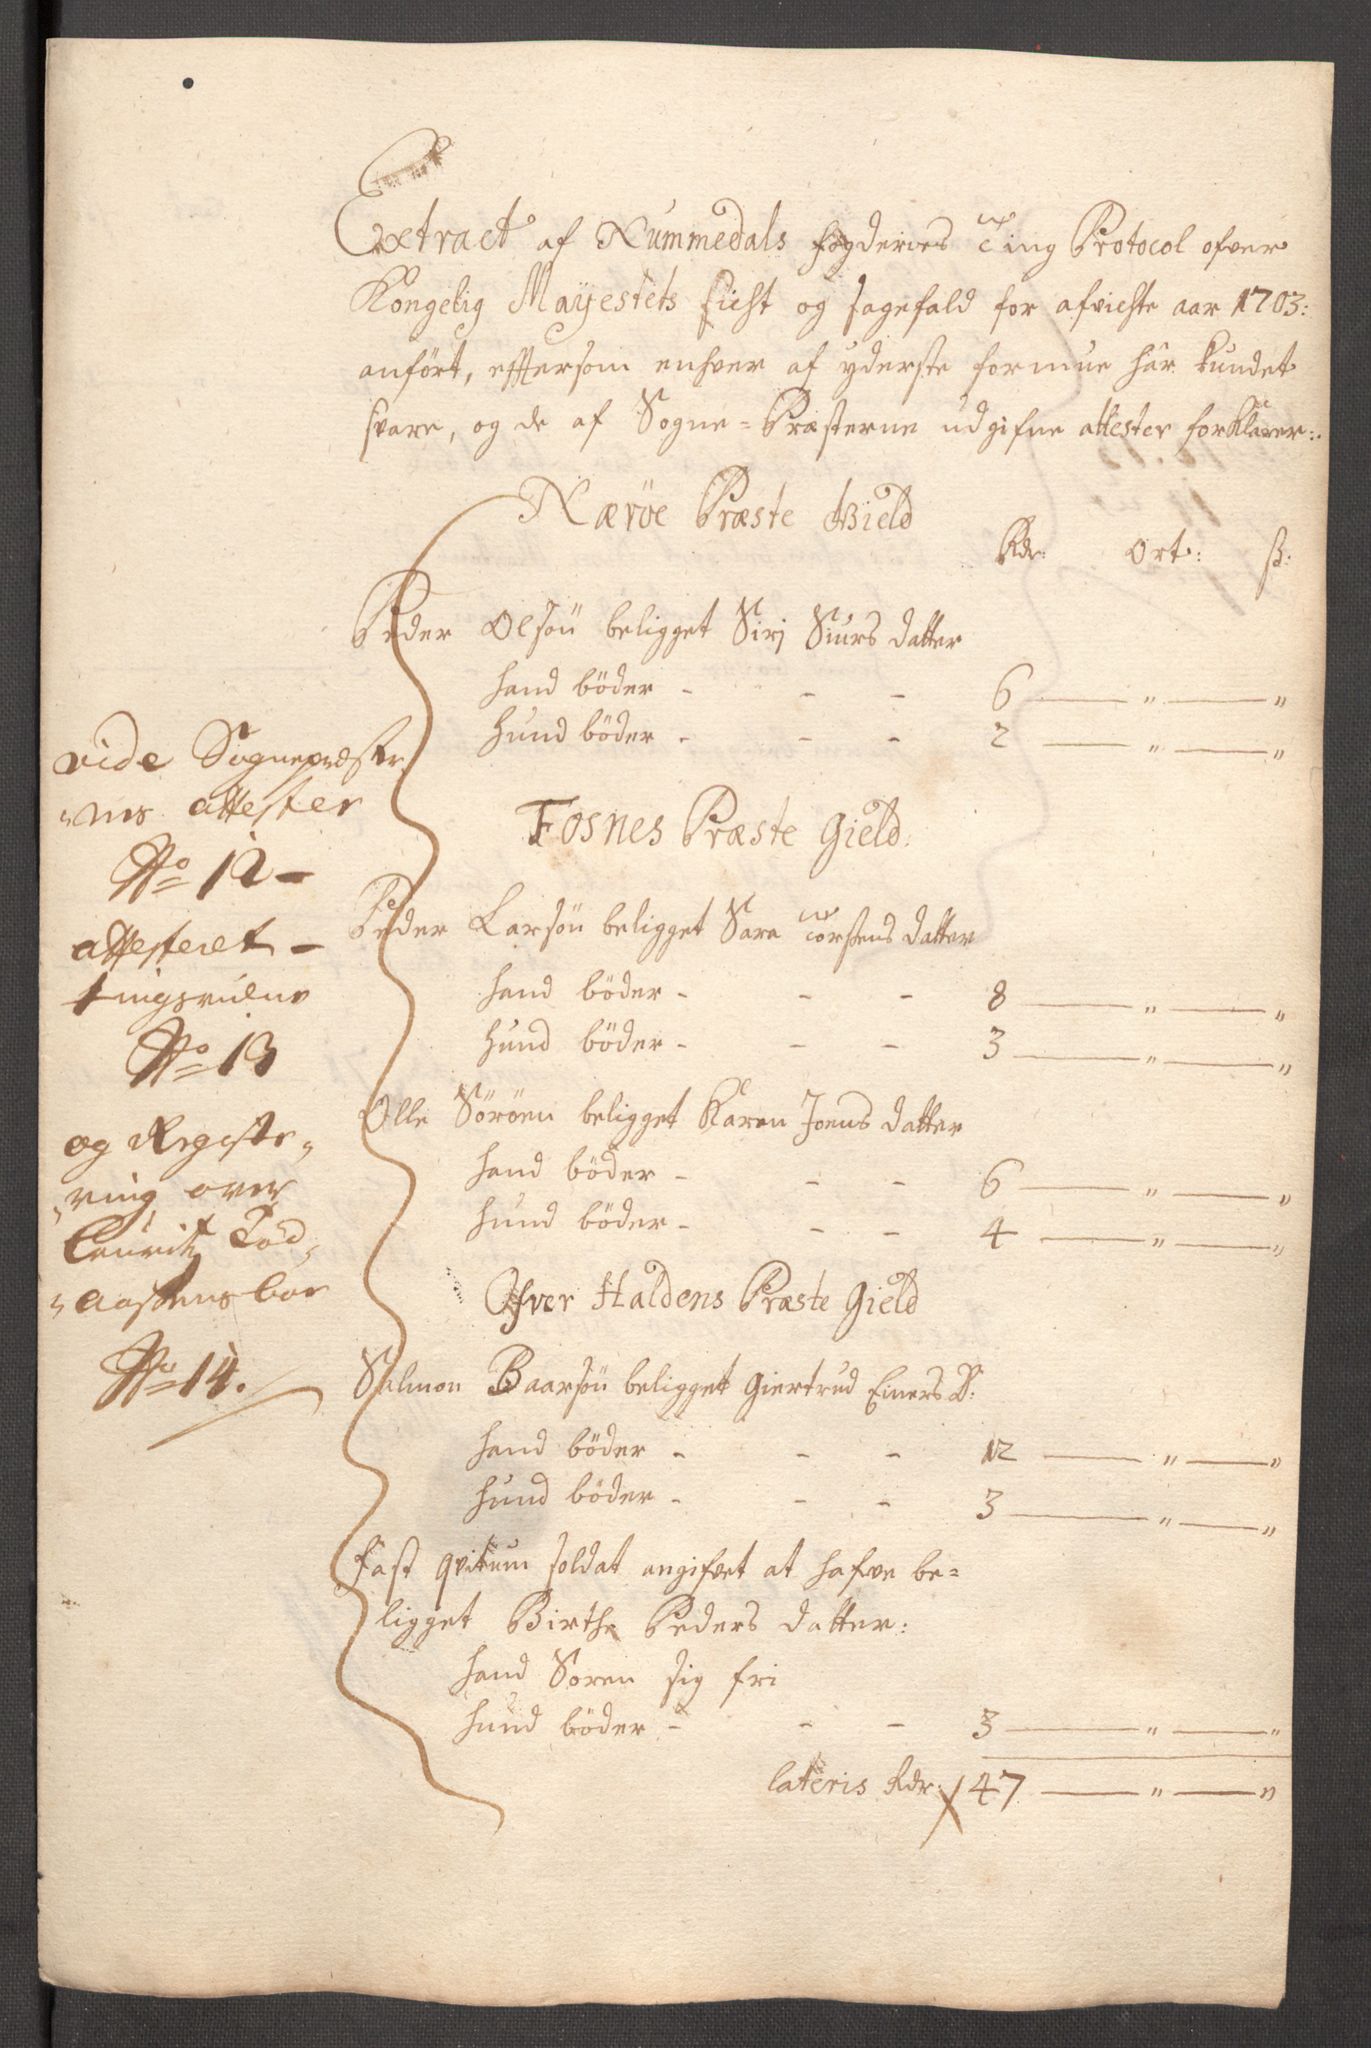 Extract af Nummedals fogderies Ting Protocol ofver
Kongelig Mayestets sicht og sagefald for afvichte aar 1703:
anført, efftersom enhver af yderste formue har kundet
svare, og de af Sogne=Præsterne udgifne attester forklarer:
Nærøe Præste Gield
Rdr: Ort: ß:
Peder Olsøn beligget Siri Siurs datter
hand bøder - - - 6 — " — "
hund bøder - - - 2 — " — "
Fosnes Præste Gield:
Peder Larsøn beligget Sara Torstens datter
hand bøder - - - 8 — " — "
hund bøder - - - 3 — " — "
Olle Sørøen beligget Karen Joens datter
hand bøder - - - 6 — " — "
hund bøder - - - 4 — " — "
Ofver Haldens Præste Gield
Salmon Baarsøn beligget Giertrud Einers D:
hand bøder - - - 12 — " — "
hund bøder - - - 3 — " — "
Fast qvitum soldat angifvet at hafve be=
ligget Birthe Peders datter:
hand Soren sig fri
hund bøder - - - 3 — " — "
lateris Rdr: 47 — " — "
vide Sognepræster
"nes attester
No 12 -
attesteret -
tingsvidne
No 13
og Registe"
"ring over
Lauritz
No 14.